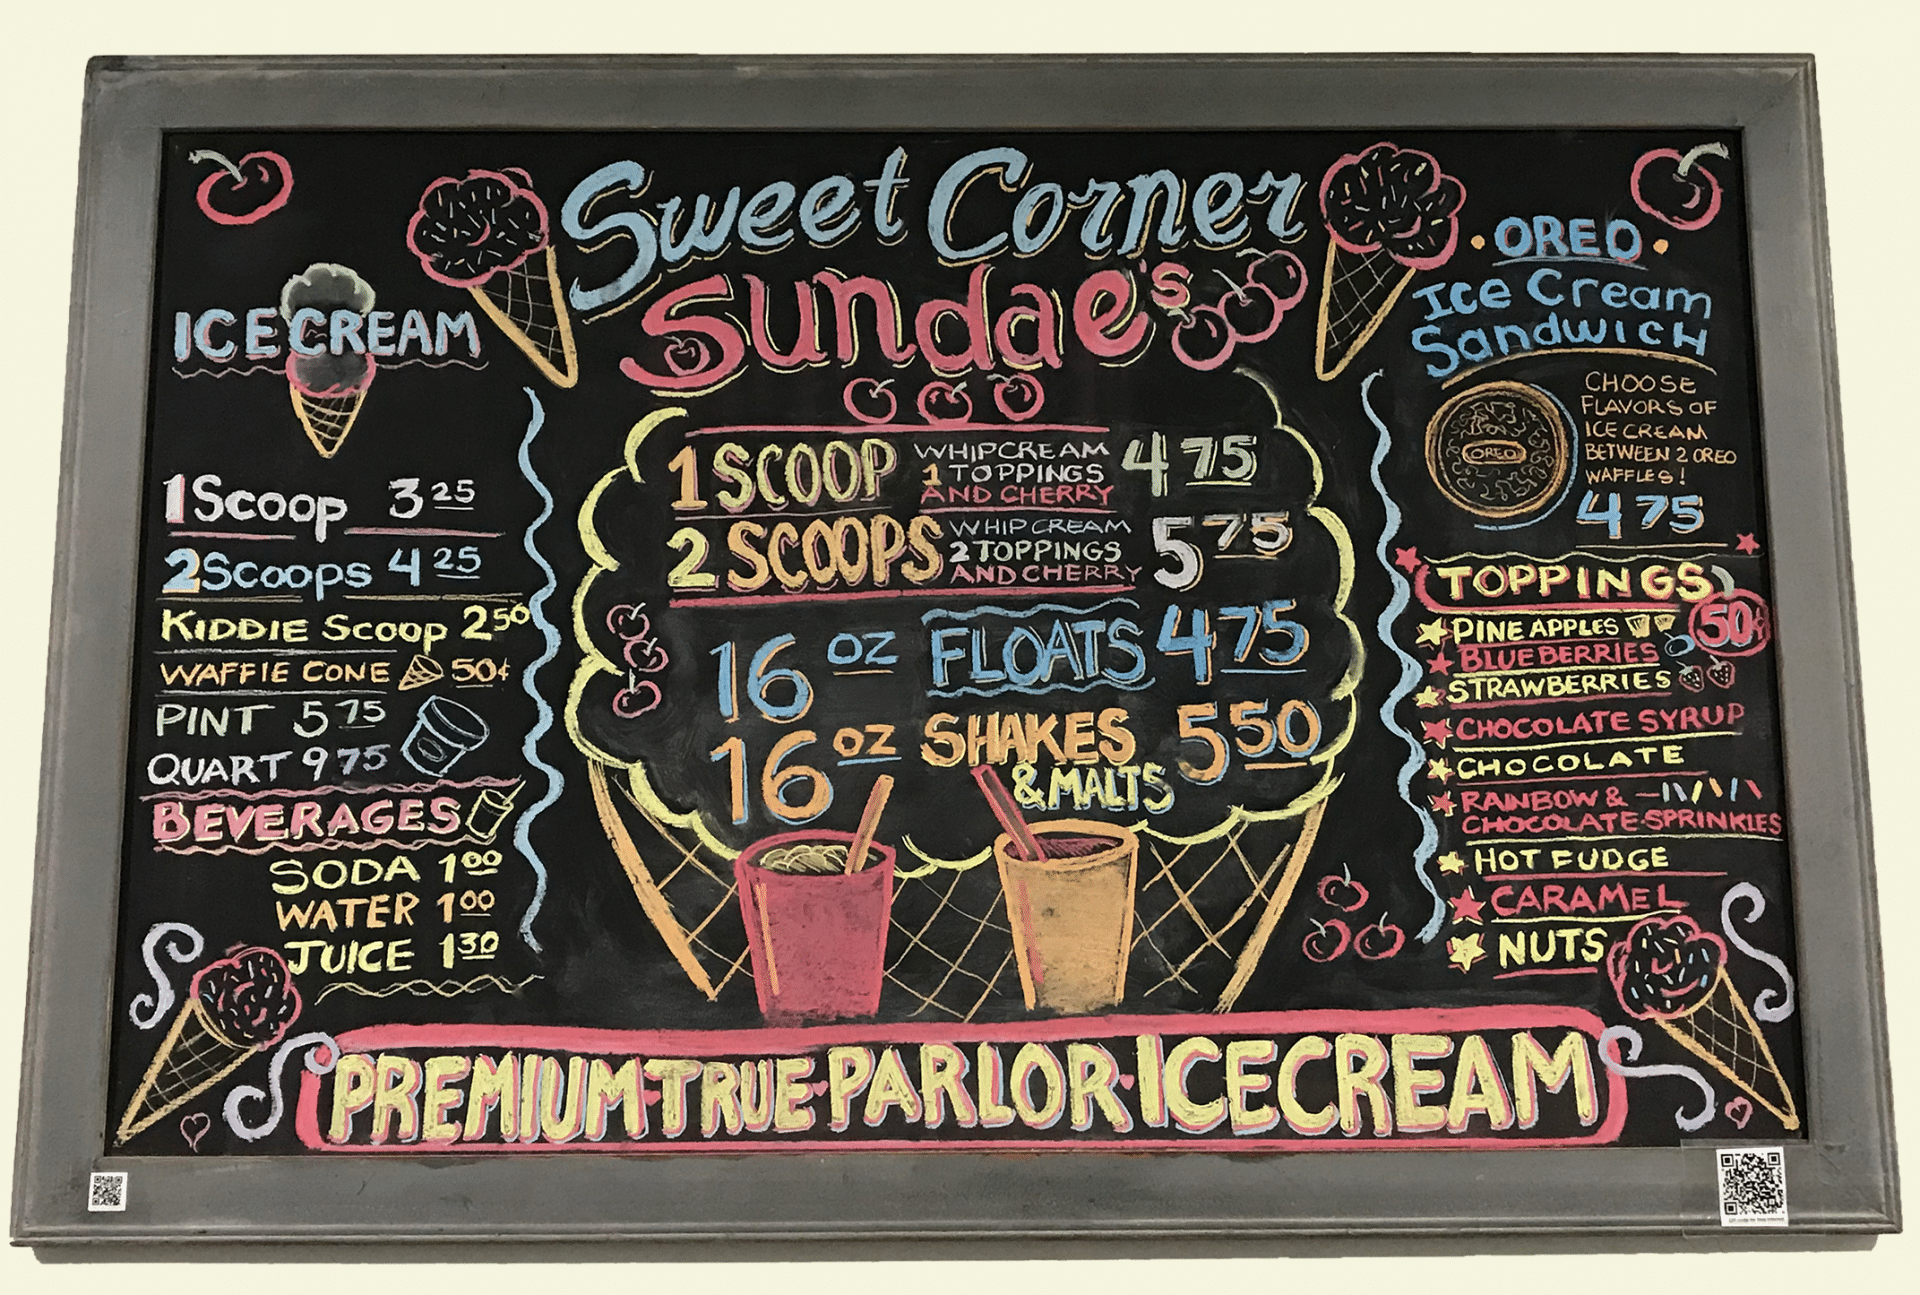 Sweet Corner
Sundae's
ICE CREAM
1 Scoop 3 25
2 Scoops 4 25
KIDDIE Scoop 2 50
WAFFIE CONE 50¢
PINT 5 75
QUART 9 75
BEVERAGES
SODA 1 00
WATER 1 00
JUICE 1 30
1 SCOOP WHIPCREAM 1 TOPPINGS AND CHERRY 4 75
2 SCOOPS WHIP CREAM 2 TOPPINGS AND CHERRY 5 75
16 OZ FLOATS 4 75
16 OZ SHAKES & MALTS 5 50
• OREO •
Ice Cream
SandwicH
OREO
CHOOSE
FLAVORS OF
ICE CREAM
BETWEEN 2 OREO
WAFFLES!
4 75
TOPPINGS
50¢
PINE APPLES
BLUEBERRIES
STRAWBERRIES
CHOCOLATE SYRUP
CHOCOLATE
RAINBOW &
CHOCOLATE-SPRINKIES
HOT FUDGE
CARAMEL
NUTS
PREMIUM·TRUE·PARLOR·ICECREAM